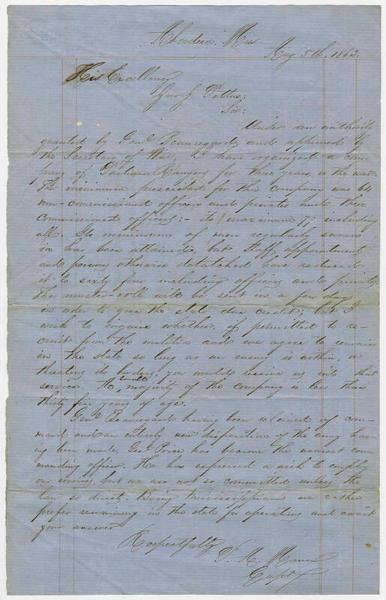 Aberdeen, Miss
Aug 5th, 1862.
His Excellency
Gov J Pettus,
Sir:
Under an authority
granted by Genl Beauregard and approved by
the Secretary of War, I have organized a com-
pany of Partisan Rangers for three years or the war.
The minimum prescribed for this company was 60
non-commissioned officers and privates and three
commissioned officers; its maximum including
all. Its minimum of men regularly sworn
in has been attained, but Staff appointments
and persons otherwise detached have reduced
it to sixty five including officers and privates.
The muster-roll will be sent in a few days
in order to give the state due credit; but I
wish to enquire whether, if permitted to re-
cruit from the militia and we agree to remain
in the state so long as an enemy is within, or
threatens its borders, you would receive us into that
service. The majority of the company is less than
thirty five years of age.
Genl Beauregard having been relieved of com-
mand and an entirely new disposition of the army hav-
ing been made, Genl has become the nearest com-
manding officer. He has expressed a wish to employ
our services, but we are not so committed unless the
law so direct. Being Mississippians we rather
prefer remaining in the state for operating and await
your answer
Respectfully
Capt